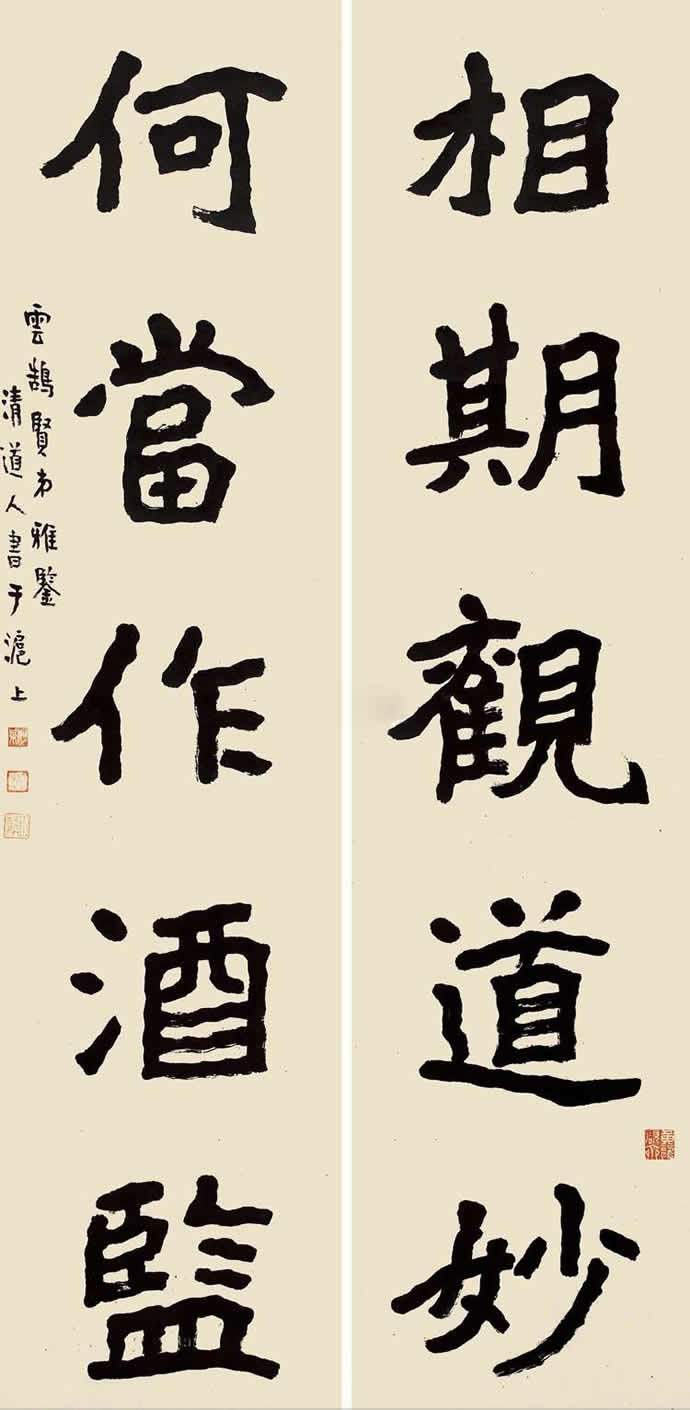 相期觀道妙
何當作酒監
雲鵠賢弟雅鑒
清道人書于滬上